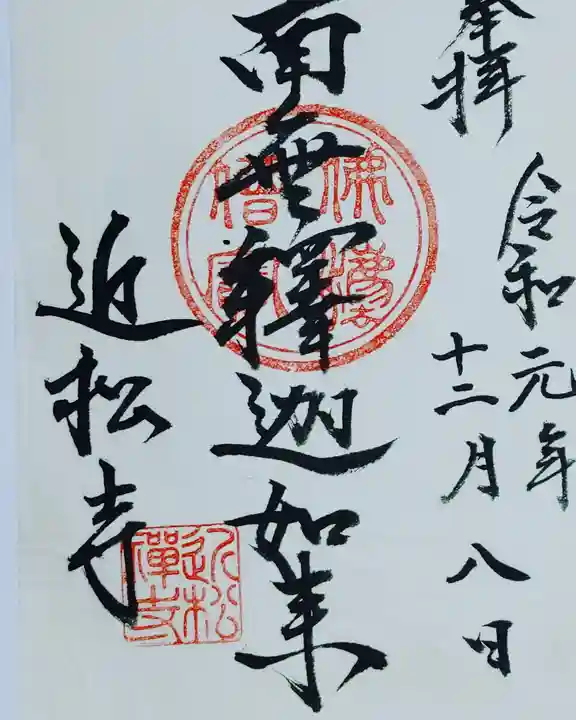 奉拝
令和元年
十二月八日
南無釋迦如来
佛法僧寶
近松寺
近松禅寺